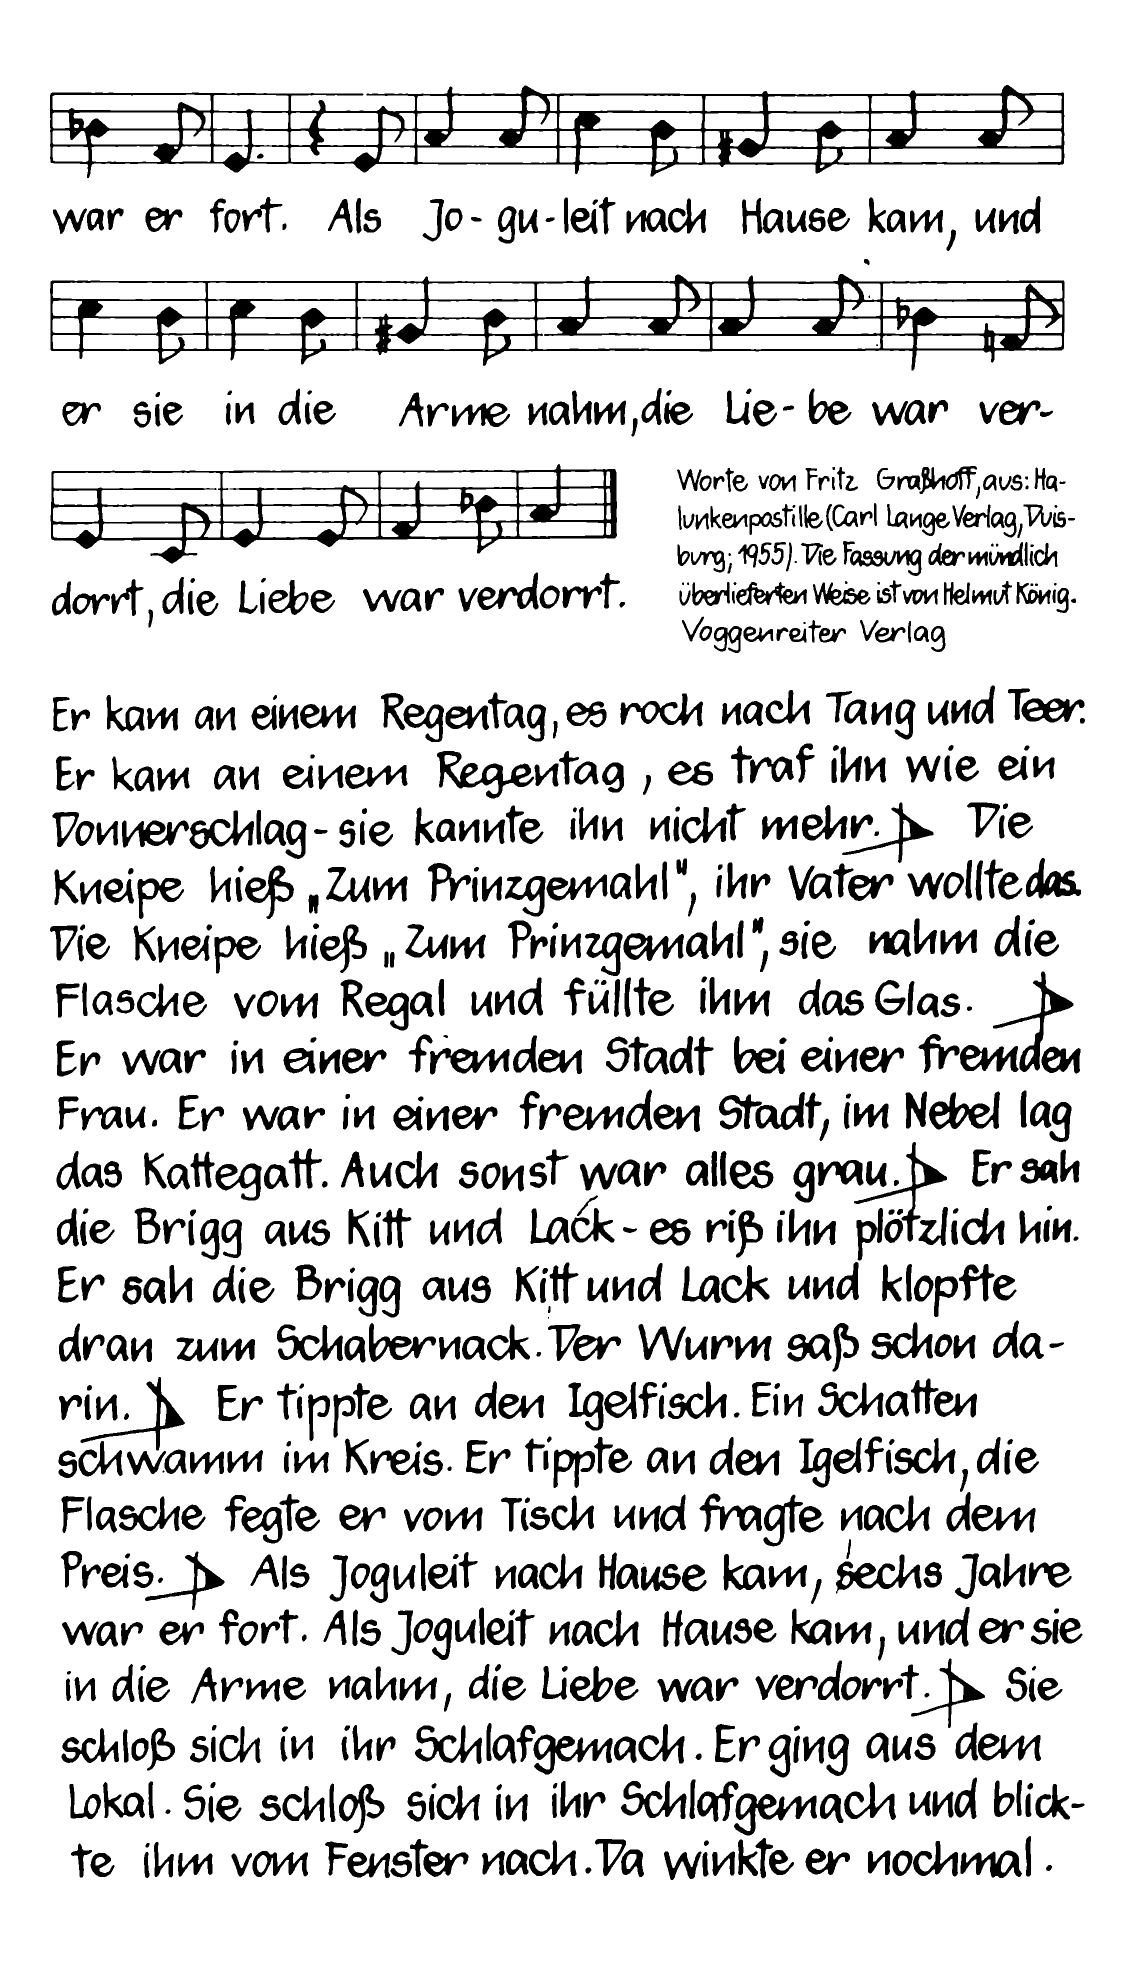 war er fort. Als Jo-gu-leit nach Hause kam, und
er sie in die Arme nahm, die Lie-be war ver-
dorrt, die Liebe war verdorrt.
Worte von Fritz Graßhoff, aus: Ha-
lunkenpostille (Carl Lange Verlag, Duis-
burg; 1955). Die Fassung der mündlich
überlieferten Weise ist von Helmut König.
Voggenreiter Verlag
Er kam an einem Regentag, es roch nach Tang und Teer.
Er kam an einem Regentag, es traf ihn wie ein
Donnerschlag - sie kannte ihn nicht mehr. Die
Kneipe hieß „Zum Prinzgemahl", ihr Vater wollte das.
Die Kneipe hieß „Zum Prinzgemahl", sie nahm die
Flasche vom Regal und füllte ihm das Glas.
Er war in einer fremden Stadt bei einer fremden
Frau. Er war in einer fremden Stadt, im Nebel lag
das Kattegatt. Auch sonst war alles grau. Er sah
die Brigg aus Kitt und Lack - es riß ihn plötzlich hin.
Er sah die Brigg aus Kitt und Lack und klopfte
dran zum Schabernack. Der Wurm saß schon da-
rin. Er tippte an den Igelfisch. Ein Schatten
schwamm im Kreis. Er tippte an den Igelfisch, die
Flasche fegte er vom Tisch und fragte nach dem
Preis. Als Joguleit nach Hause kam, sechs Jahre
war er fort. Als Joguleit nach Hause kam, und er sie
in die Arme nahm, die Liebe war verdorrt. Sie
schloß sich in ihr Schlafgemach. Er ging aus dem
Lokal. Sie schloß sich in ihr Schlafgemach und blick-
te ihm vom Fenster nach. Da winkte er nochmal.